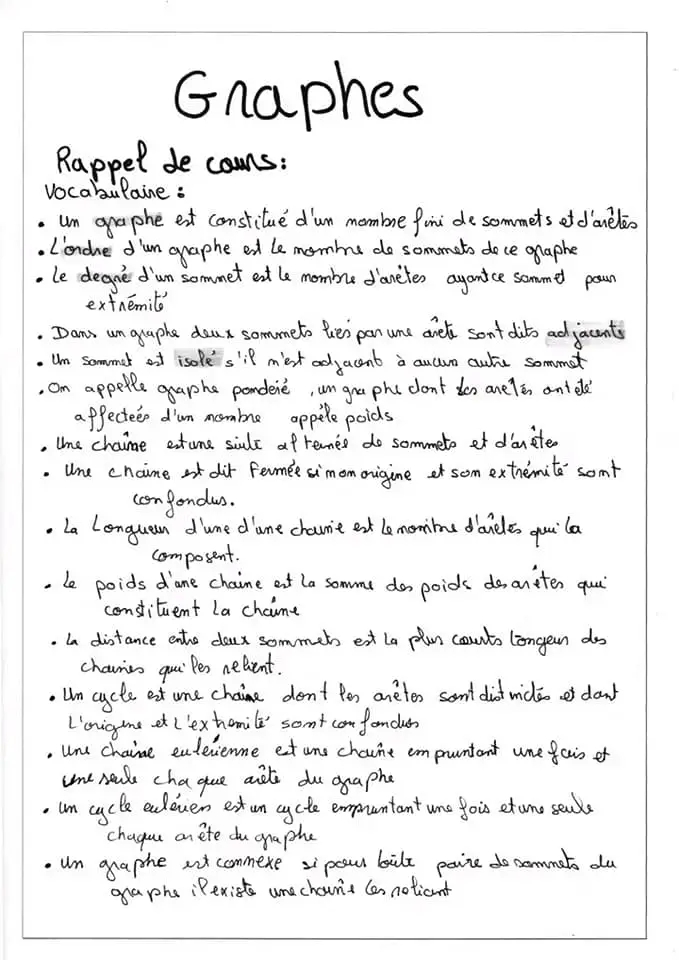 Graphes
Rappel de cours :
Vocabulaire :
• Un graphe est constitué d'un nombre fini de sommets et d'arêtes
• L'ordre d'un graphe est le nombre de sommets de ce graphe
• Le degré d'un sommet est le nombre d'arêtes ayant ce sommet pour
extrémité
• Dans un graphe deux sommets liés par une arête sont dits adjacents
• Un sommet est isolé s'il n'est adjacent à aucun autre sommet
• On appelle graphe pondéré, un graphe dont les arêtes ont été
affectées d'un nombre appèlé poids
• Une chaîne est une suite alternée de sommets et d'arêtes
• Une chaine est dit fermée si mon origine et son extrémité sont
confondus.
• La Longueur d'une d'une chaine est le nombre d'arêtes qui la
composent.
• Le poids d'une chaine est la somme des poids des arêtes qui
constituent la chaîne
• La distance entre deux sommets est la plus courts longeur des
chaines qui les relient.
• Un cycle est une chaîne dont les arêtes sont distinctes et dont
L'origine et L'extremité sont confondus
• Une chaîne eulérienne est une chaîne empruntant une fois et
une seule chaque arête du graphe
• Un cycle eulérien est un cycle empruntant une fois et une seule
chaque arête du graphe
• Un graphe est connexe si pour toute paire de sommets du
graphe il existe une chaîne les reliant